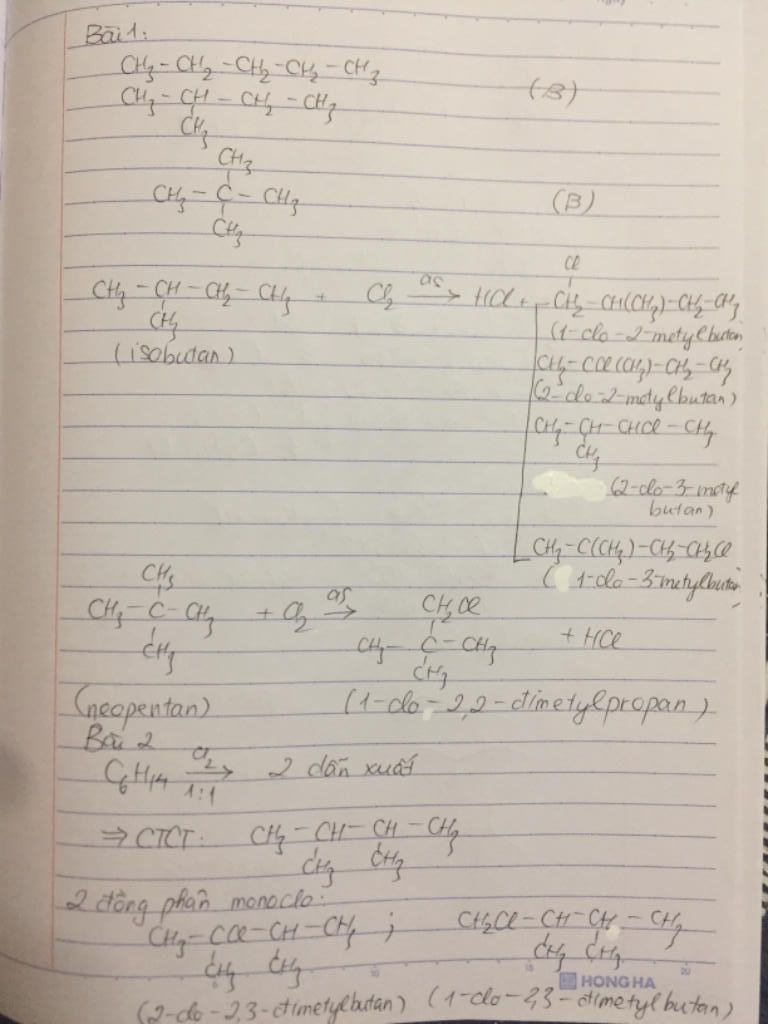 Bài 1:
CH3 - CH2 - CH2 - CH2 - CH3
CH3 - CH - CH2 - CH3 (B)
CH3
CH3
CH3 - C - CH3 (B)
CH3
Cl
CH3 - CH - CH2 - CH3 + Cl2 as → HCl + CH2 - CH(CH3) - CH2 - CH3
CH3 (1-clo-2-metylbutan
(isobutan) CH3 - CCl(CH3) - CH2 - CH3
(2-clo-2-metylbutan)
CH3 - CH - CHCl - CH3
CH3
(2-clo-3-metyl
butan)
CH3 - C(CH3) - CH2 - CH2Cl
(1-clo-3-metylbutan
CH3 CH2Cl
CH3 - C - CH3 + Cl2 as → CH3 - C - CH3 + HCl
CH3 CH3
(neopentan) (1-clo-2,2-đimetylpropan)
Bài 2
C6H14 Cl2 1:1 → 2 dẫn xuất
⇒ CTCT: CH3 - CH - CH - CH3
CH3 CH3
2 đồng phân monoclo:
CH3 - CCl - CH - CH3 ; CH2Cl - CH - CH - CH3
CH3 CH3 CH3 CH3
5 10 15 HONG HA 20
(2-clo-2,3-đimetylbutan) (1-clo-2,3-đimetylbutan)